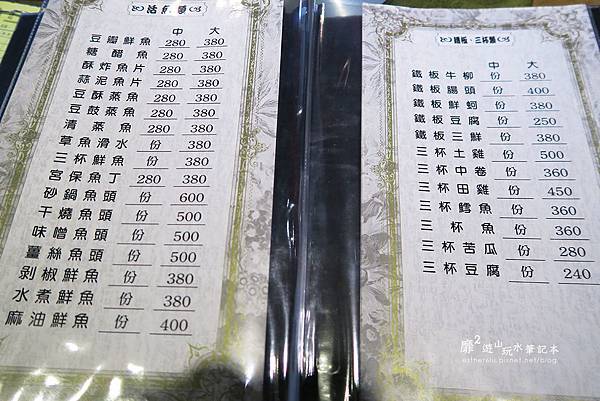 活魚類
中 大
豆瓣鮮魚 280 380
糖醋魚 280 380
酥炸魚片 280 380
蒜泥魚片 280 380
豆酥蒸魚 280 380
豆鼓蒸魚 280 380
清蒸魚 280 380
草魚滑水 份 380
三杯鮮魚 份 380
宮保魚丁 280 380
砂鍋魚頭 份 600
干燒魚頭 份 500
味噌魚頭 份 500
薑絲魚頭 份 500
剝椒鮮魚 份 380
水煮鮮魚 份 380
麻油鮮魚 份 400
鐵板・三杯類
中 大
鐵板牛柳 份 380
鐵板腸頭 份 400
鐵板鮮蚵 份 380
鐵板豆腐 份 250
鐵板三鮮 份 380
三杯土雞 份 500
三杯中卷 份 360
三杯田雞 份 450
三杯鱈魚 份 360
三杯魚 份 360
三杯苦瓜 份 280
三杯豆腐 份 240
靡2遊山玩水筆記本
estherelu.pixnet.net/blog